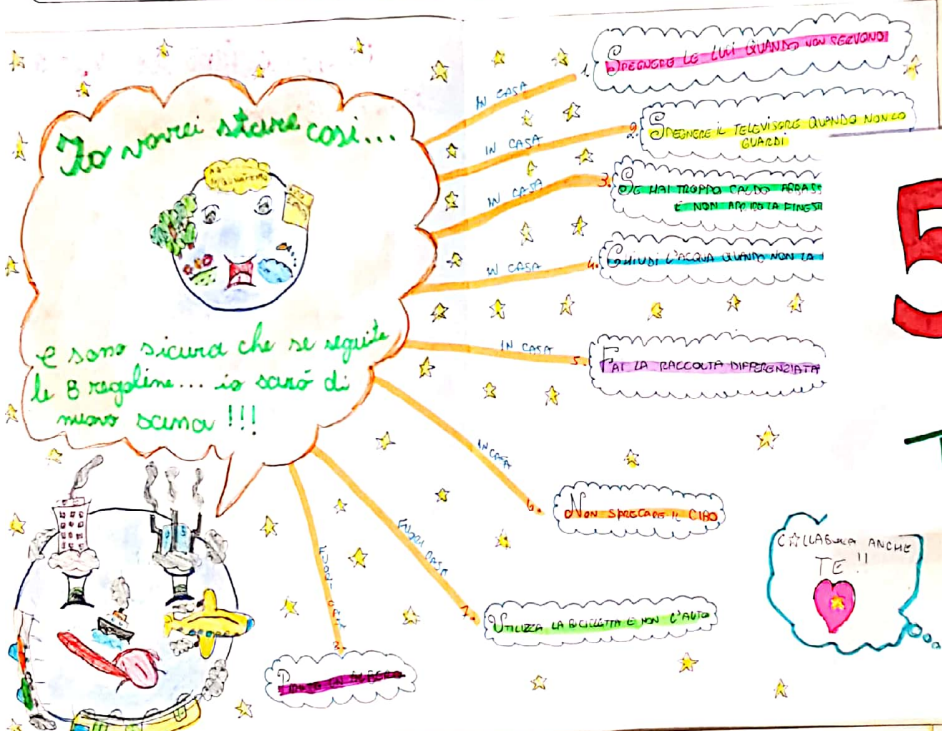 Io vorrei stare così...
e sono sicura che se seguite
le 8 regoline... io sarò di
nuovo sana !!!
IN CASA
1. SPEGNERE LE LUCI QUANDO NON SERVONO!
IN CASA
2. SPEGNERE IL TELEVISORE QUANDO NON LO
GUARDI
IN CASA
3. SE HAI TROPPO CALDO ABBASS
E NON APRIRE LA FINEST
IN CASA
4. CHIUDI L'ACQUA QUANDO NON LA
IN CASA
5. FAI LA RACCOLTA DIFFERENZIATA
IN CASA
6. NON SPRECARE IL CIBO
FUORI CASA
7. UTILIZZA LA BICICLETTA E NON L'AUTO
FUORI CASA
8. PIANTA UN ALBERO
COLLABORA ANCHE
TE!!
5